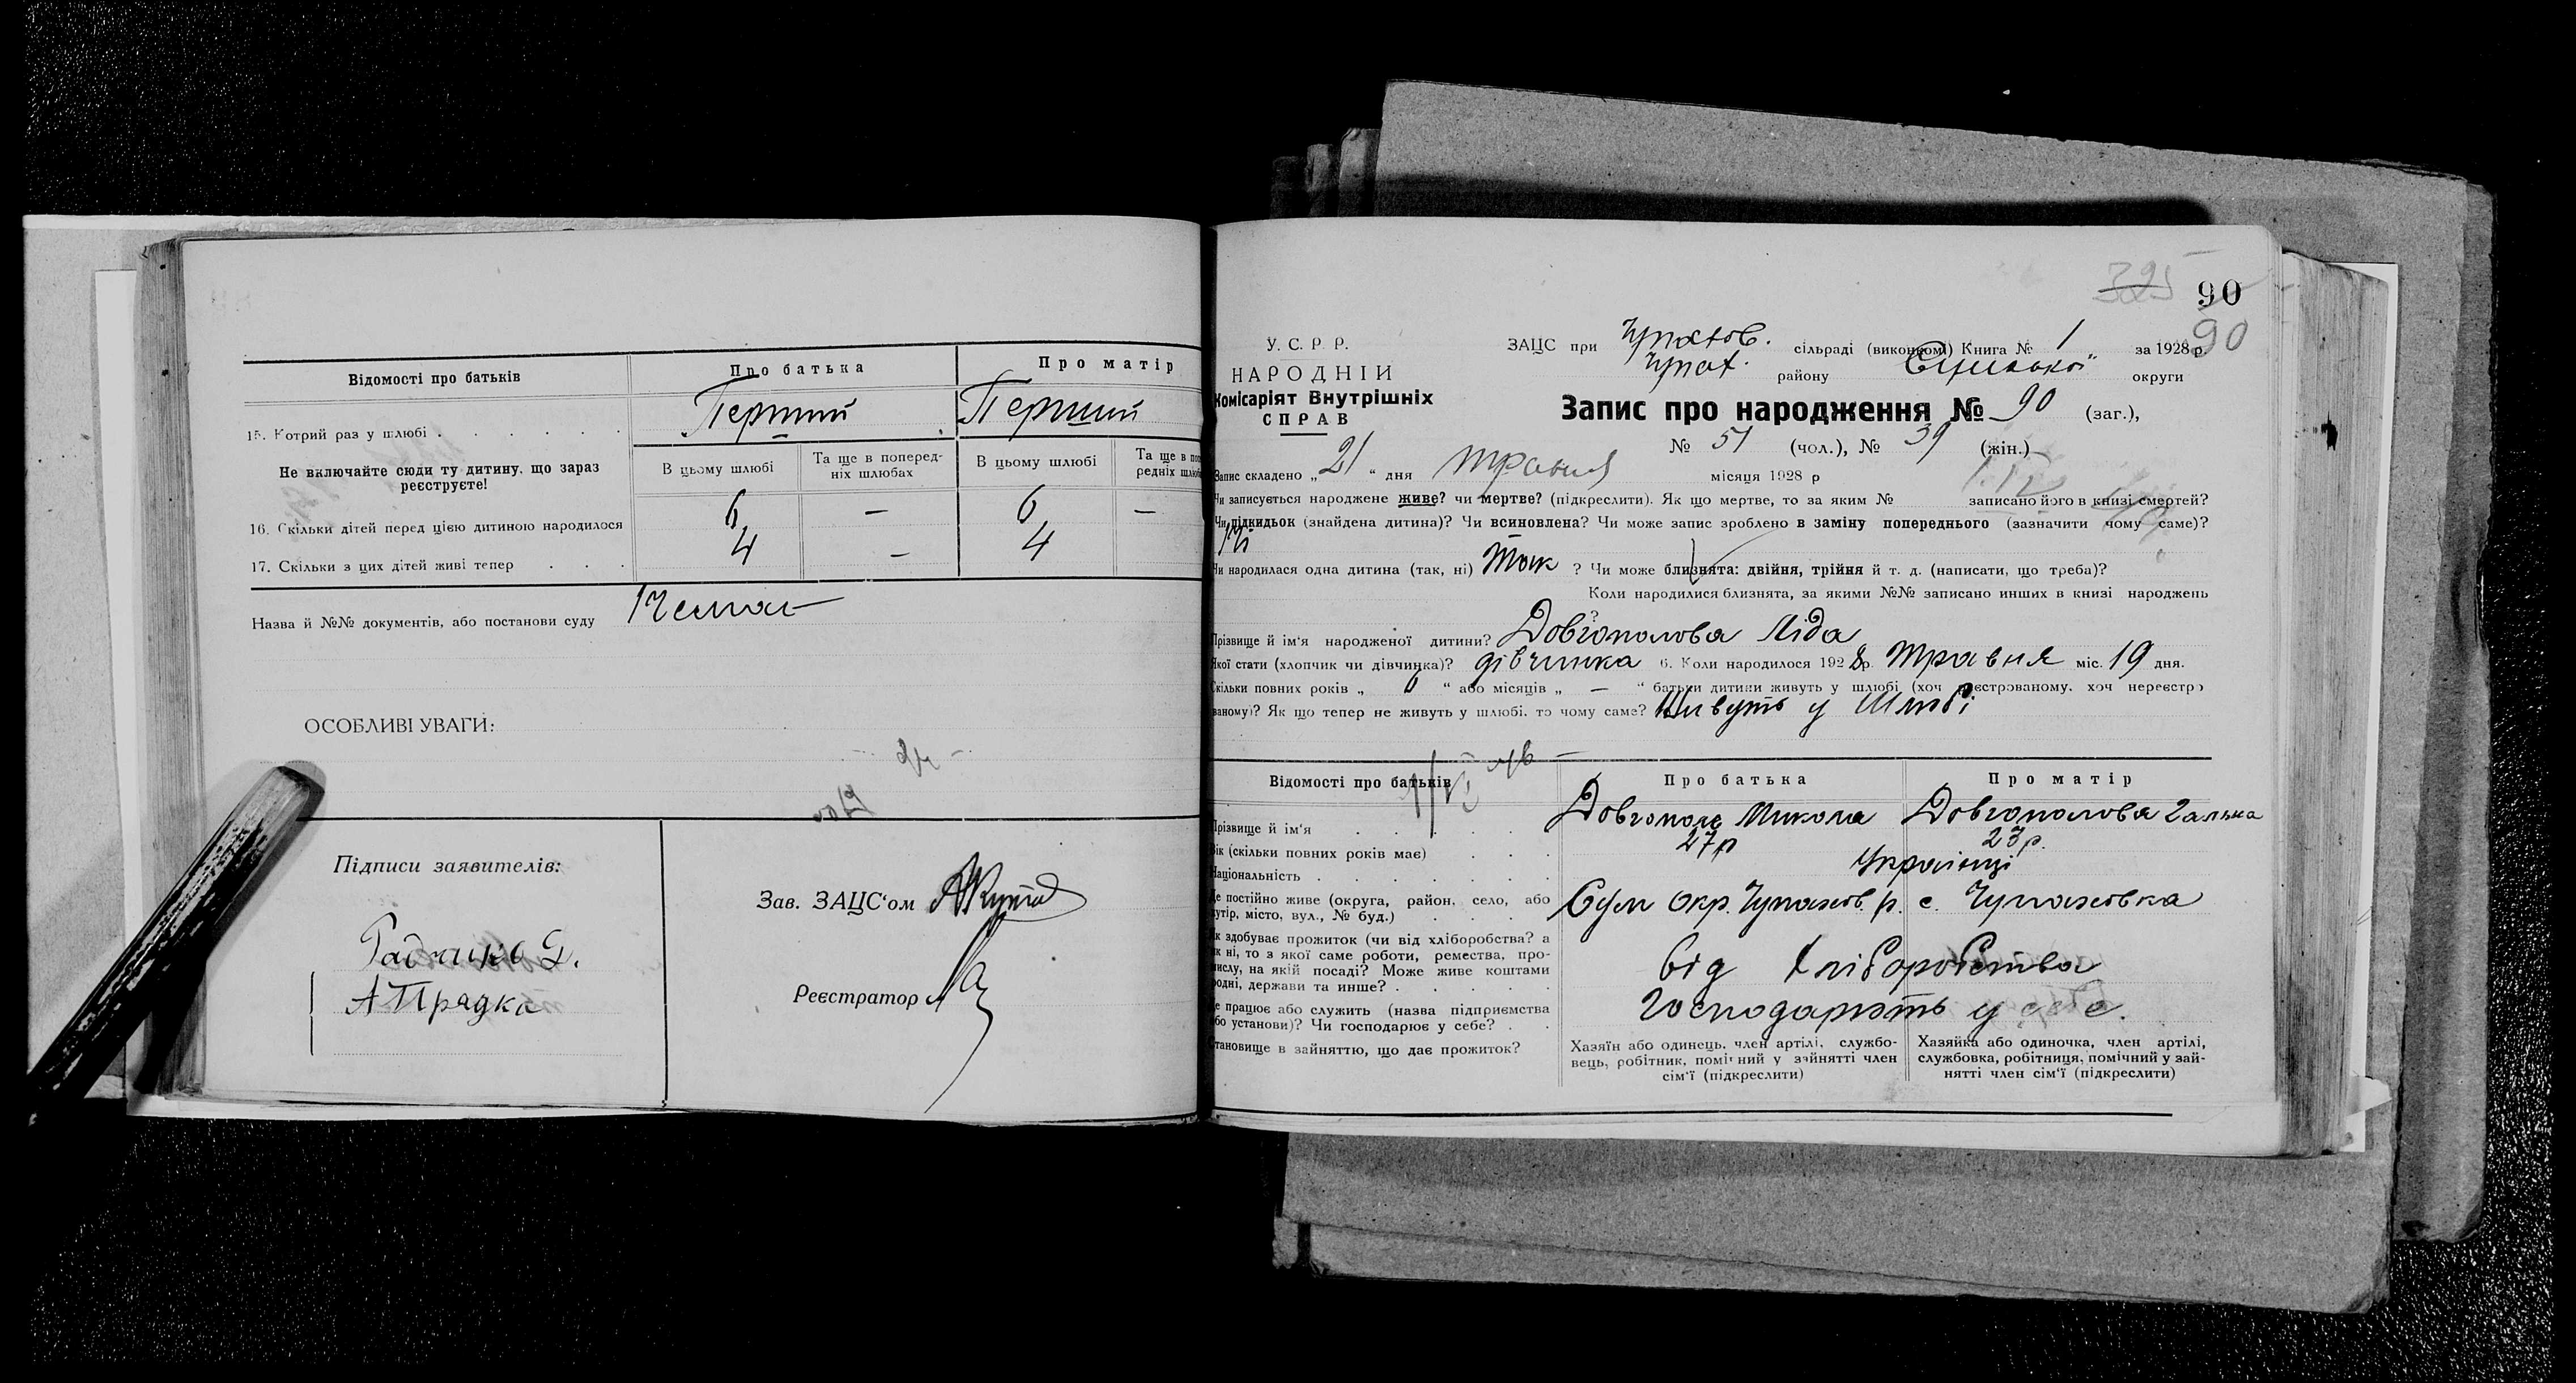 Відомості про батьків
Про батька
Про матір
15. Котрий раз у шлюбі
Перший
Перший
Не включайте сюди ту дитину, що зараз
реєструєте!
В цьому шлюбі
Та ще в поперед-
ніх шлюбах
В цьому шлюбі
Та ще в поп
редніх шлюб
16. Скільки дітей перед цією дитиною народилося
6 — 6 —
17. Скільки з цих дітей живі тепер
4 — 4
Назва й №№ документів, або постанови суду Немає
ОСОБЛИВІ УВАГИ:
Підписи заявителів:
А Прядка
Зав. ЗАЦС'ом
Реєстратор
325 90
90
У. С. Р. Р.
НАРОДНІЙ
Комісаріят Внутрішніх
СПРАВ
ЗАЦС при Чупахов. сільраді (виконкомі) Книга № 1 за 1928 р.
Чупах. району Сумської округи
Запис про народження № 90 (заг.),
№ 51 (чол.), № 39 (жін.)
Запис складено „21“ дня травня місяця 1928 р
Чи записується народжене живе? чи мертве? (підкреслити). Як що мертве, то за яким № записано його в книзі смертей?
Чи підкидьок (знайдена дитина)? Чи всиновлена? Чи може запис зроблено в заміну попереднього (зазначити чому саме)?
Ні
Чи народилася одна дитина (так, ні) Так ? Чи може близнята: двійня, трійня й т. д. (написати, що треба)?
Коли народилися близнята, за якими №№ записано инших в книзі народжень
?
Прізвище й ім'я народженої дитини? Довгополова Ліда
Якої стати (хлопчик чи дівчинка)? дівчинка 6. Коли народилося 1928 р. Травня міс. 19 дня.
Скільки повних років „ 6 “ або місяців „ — “ батьки дитини живуть у шлюбі (хоч реєстрованому, хоч нереєстро
ваному)? Як що тепер не живуть у шлюбі, то чому саме? Живуть у Шлюбі
Відомості про батьків
Про батька
Про матір
Прізвище й ім'я
Довгополов Микола
Довгополова Галька
Вік (скільки повних років має)
27 р
23 р.
Національність
Українці
Де постійно живе (округа, район, село, або
хутір, місто, вул., № буд.)
Сум Окр. Чупахов. р. с. Чупаховка
Як здобуває прожиток (чи від хліборобства? а
як ні, то з якої саме роботи, ремества, про-
мислу, на якій посаді? Може живе коштами
родні, держави та инше?
від Хліборобства
Де працює або служить (назва підприємства
або установи)? Чи господарює у себе?
Господарюють у себе.
Становище в зайняттю, що дає прожиток?
Хазяїн або одинець, член артілі, службо-
вець, робітник, помічний у зайнятті член
сім'ї (підкреслити)
Хазяйка або одиночка, член артілі,
службовка, робітниця, помічний у зай-
нятті член сім'ї (підкреслити)